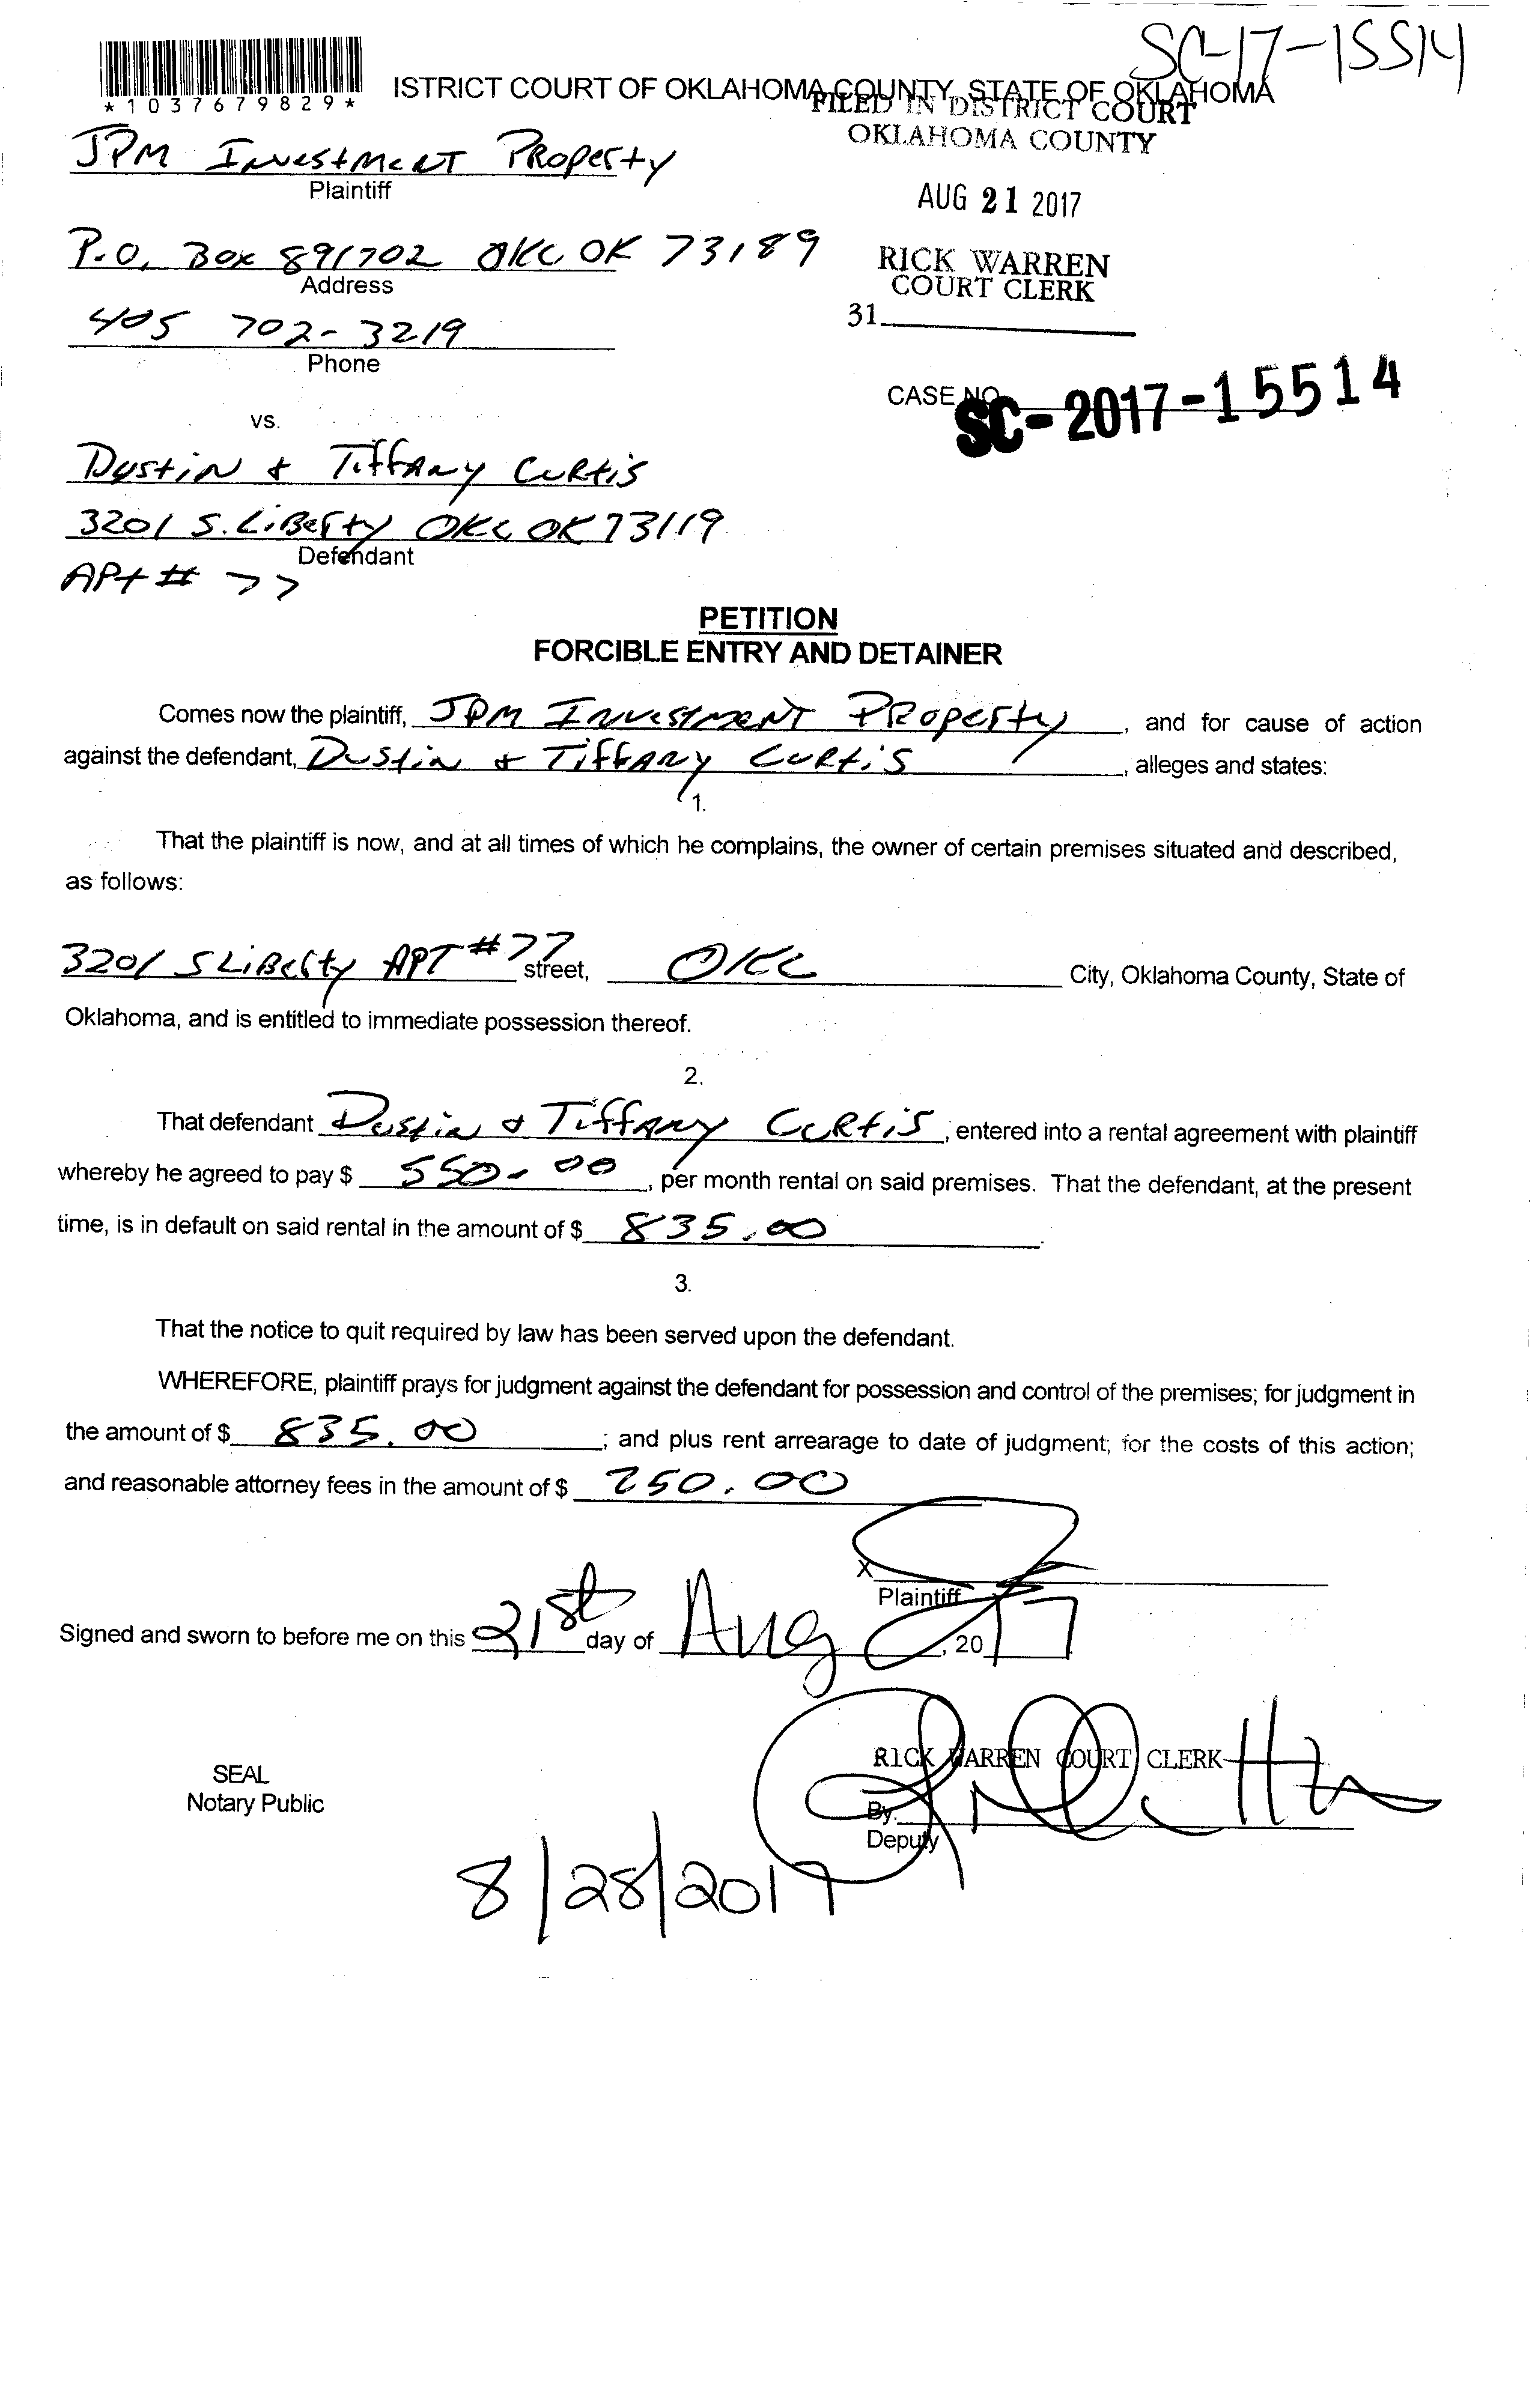 SC-17-15514
*1037679829*
ISTRICT COURT OF OKLAHOMA COUNTY, STATE OF OKLAHOMA
FILED IN DISTRICT COURT
OKLAHOMA COUNTY
JPM Investment Property
Plaintiff
AUG 21 2017
P.O. Box 891702 OKC OK 73189
Address
RICK WARREN
COURT CLERK
31
405 702-3219
Phone
CASE NO.
SC-2017-15514
vs.
Dustin & Tiffany Curtis
3201 S. Liberty OKC OK 73119
Defendant
APt # 77
PETITION
FORCIBLE ENTRY AND DETAINER
Comes now the plaintiff, JPM Investment Property, and for cause of action
against the defendant, Dustin & Tiffany Curtis, alleges and states:
1.
That the plaintiff is now, and at all times of which he complains, the owner of certain premises situated and described,
as follows:
3201 S Liberty APT #77 street, OKC City, Oklahoma County, State of
Oklahoma, and is entitled to immediate possession thereof.
2.
That defendant Dustin & Tiffany Curtis, entered into a rental agreement with plaintiff
whereby he agreed to pay $ 550.00, per month rental on said premises. That the defendant, at the present
time, is in default on said rental in the amount of $ 835.00.
3.
That the notice to quit required by law has been served upon the defendant.
WHEREFORE, plaintiff prays for judgment against the defendant for possession and control of the premises; for judgment in
the amount of $ 835.00; and plus rent arrearage to date of judgment; for the costs of this action;
and reasonable attorney fees in the amount of $ 250.00
X
Plaintiff
Signed and sworn to before me on this 21st day of Aug, 2017
RICK WARREN COURT CLERK
SEAL
Notary Public
By.
Deputy
8/28/2017